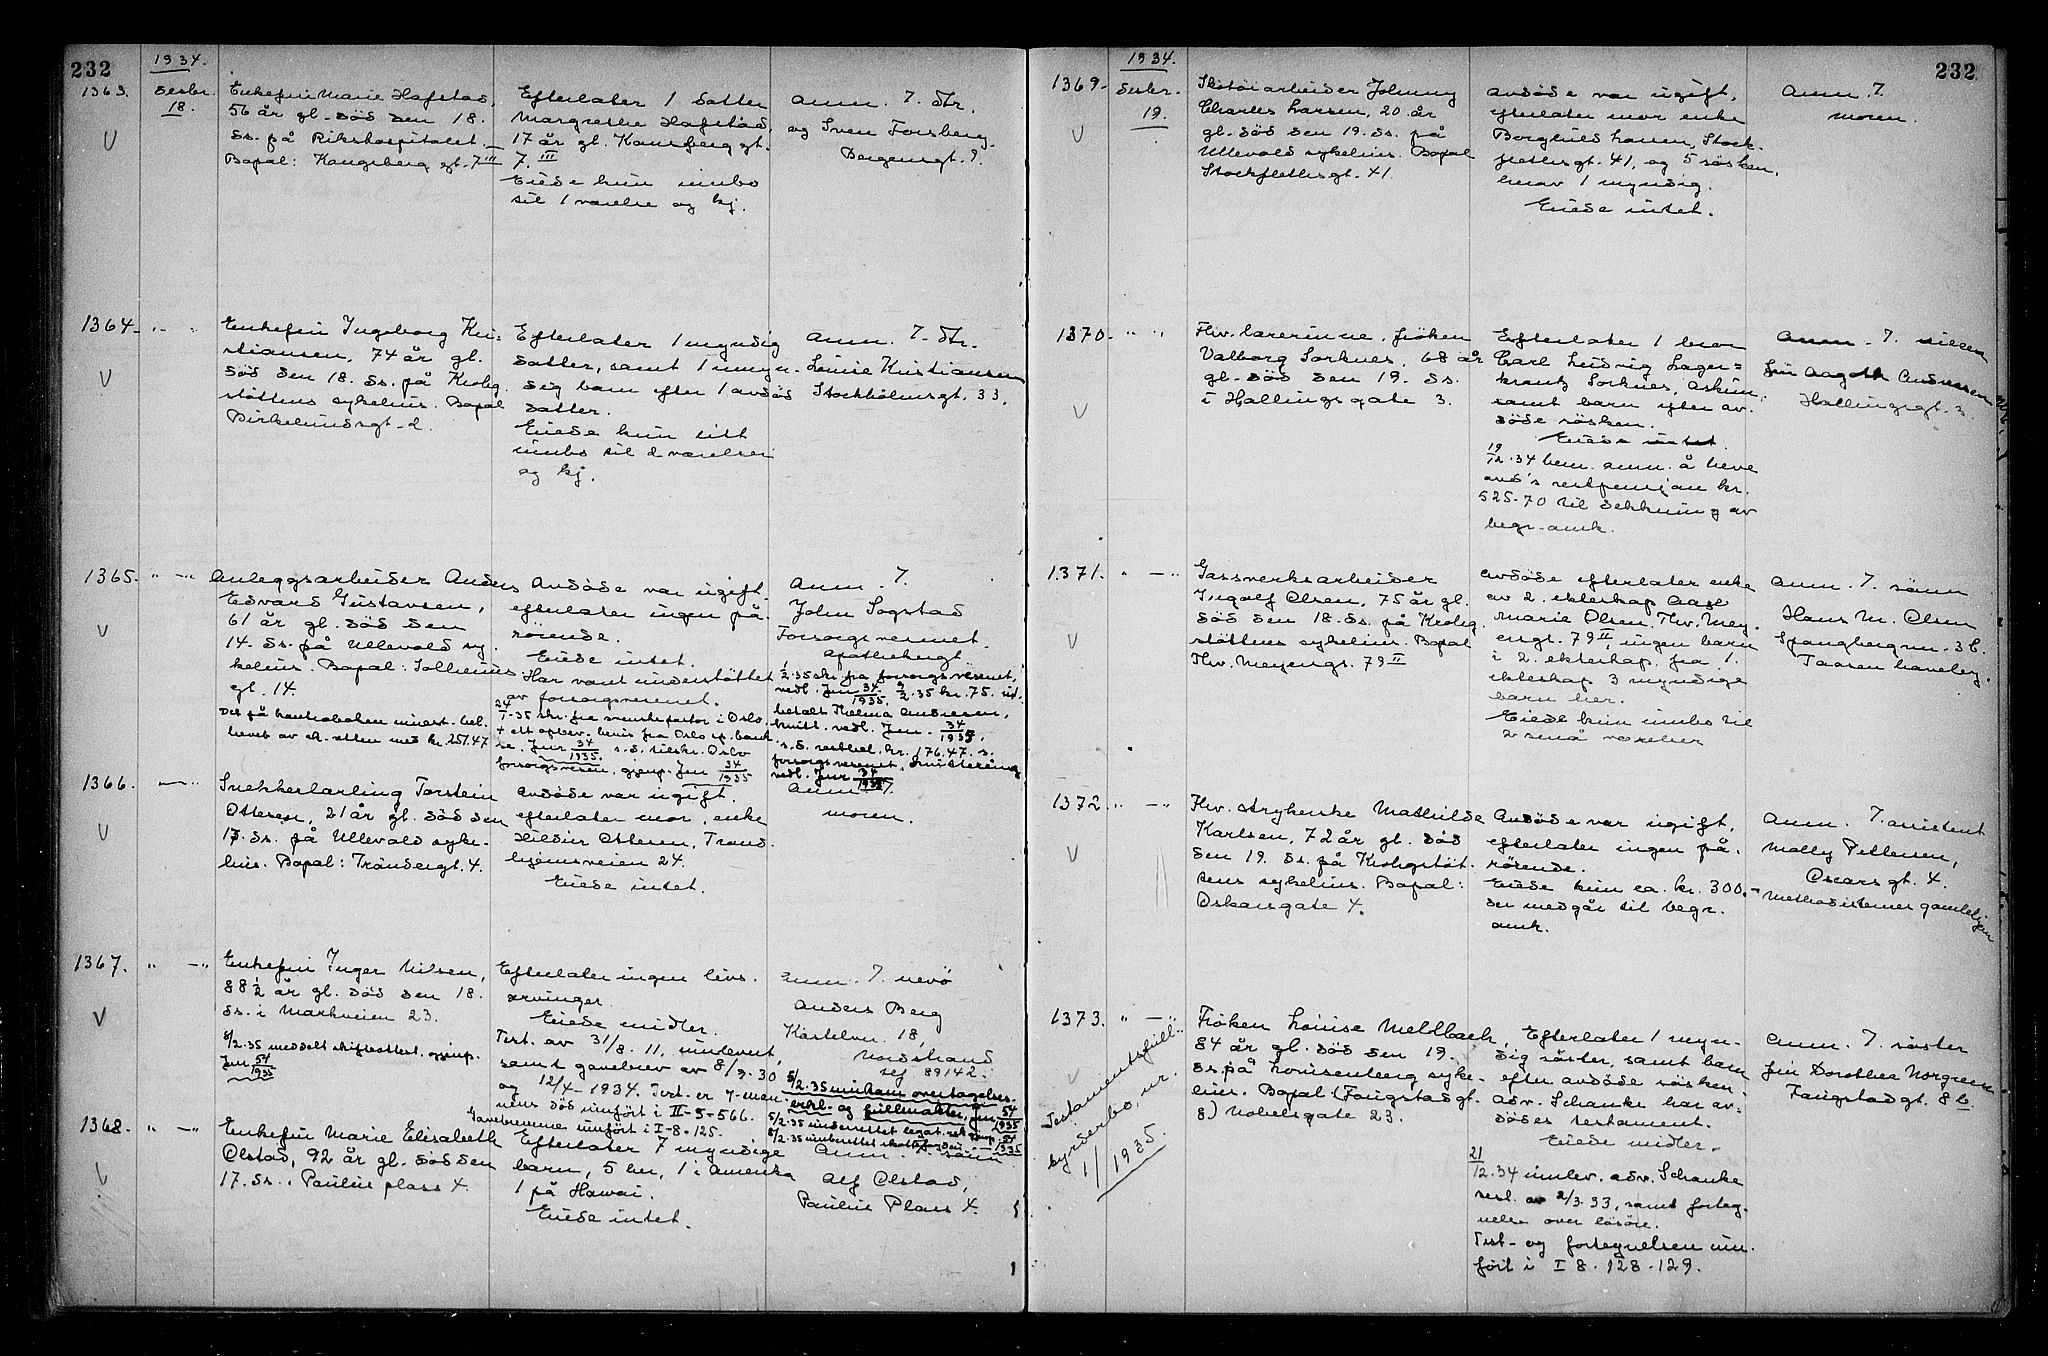 232
1934.
1363. Desbr. 18.
Enkefru Marie Hafstad,
56 år gl. død den 18.
ds. på Rikshospitalet.
Bopæl: Kongsberg gt. 7 III
Efterlater 1 datter
Margrethe Hafstad,
17 år gl. Konsberg gt.
7. III
Eiede kun innbo
til 1 værelse og kj.
Anm. 7. dtr.
og Sven Forsberg
Bergensgt. 9.
1364. " - "
Enkefru Ingeborg Kri-
stiansen, 74 år gl.
død den 18. ds. på Krohg
støttens sykehus. Bopæl
Birkelundsgt. 2.
Efterlater 1 myndig
datter, samt 1 umyn-
dig barn efter 1 avdød
datter.
Eiede kun litt
innbo til 2 værelser
og kj.
Anm. 7. dtr.
Louise Kristiansen
Stockholmsgt. 33.
1365. " - "
Anleggsarbeider Anders
Edvard Gustavsen,
61 år gl. død den
14. ds. på Ullevold sy-
kehus. Bopæl: Sollien
gt. 14.
Det på kontraboken innest. bel.
hevet av sk. retten med kr. 251.47
Avdøde var ugift.
efterlater ingen på-
rørende.
Eiede intet.
Har vært understøttet
av forsorgsvesenet.
24/1-35 skr. fra svenske pastor i Oslo
+ ett opbev. bevis fra Oslo sp. bank
se. Jnr 34/1935. s.d. tilskr. Oslo
forsorgsvesen, gjenp. Jnr 34/1935
Anm. 7.
John Sogstad
Forsorgsvesenet
Apothekergt.
1/2.35 skr fra forsorgsvesenet,
vedl. Jnr 34/1935. 9/2.35 kr. 75. ut-
betalt Thelma Andresen,
kvitt. vedl. Jnr. 34/1935.
s.d. restbel. kr. 176.47 s.
forsorgsvesenet, kvittering
vedl. Jnr 34/1935
1366. " - "
Snekkerlærling Torstein
Ottesen, 21 år gl. død den
17. ds. på Ullevold syke-
hus. Bopæl: Trøndergt. 4.
Avdøde var ugift.
efterlater mor, enke
Hildur Ottesen, Trond-
hjemsveien 24.
Eiede intet.
Anm. 7.
moren.
1367. " - "
Enkefru Inger Nilsen,
88 1/2 år gl. død den 18.
ds. i Markveien 23.
8/2.35 meddelt skifteattest. gjenp.
Jnr 54/1935
Efterlater ingen livs-
arvinger.
Eiede midler.
Test. av 31/8. 11, innlevert,
samt gavebrev av 8/9.30
og 12/4-1934. Test. er 7-men
nens død innført i II-5-566.
Gavebrevene innført i I-8-125.
Anm. 7. nevø
Anders Berg
Kastelvn. 18,
Nordstrand
tlf 89142.
5/2.35 innkom overtagelses-
erkl. og fullmakter, Jnr 54/1935
5/2.35 underrettet legat.
8/2.35 innberettet skattefogden 54/1935
1368. " - "
Enkefru Marie Elisabeth
Olstad, 92 år gl. død den
17. ds. i Paulus plass 4.
Efterlater 7 myndige
barn, 5 her, 1 i Amerika
1 på Hawai.
Eiede intet.
Anm. sønn
Alf Olstad,
Paulus Plass 4.
232
1934.
1369. Desbr. 19.
Skotøiarbeider Johnny
Charles Larsen, 20 år
gl. død den 19. ds. på
Ullevold sykehus. Bopæl
Stockflethsgt. 41.
Avdøde var ugift,
efterlater mor enke
Borghild Larsen, Stock-
flethsgt. 41, og 5 søsken,
herav 1 myndig.
Eiede intet.
Anm. 7.
moren.
1370. " "
Fhv. lærerinne, frøken
Valborg Sorknes, 68 år
gl. død den 19. ds.
i Hallings gate 3.
Efterlater 1 bror
Carl Ludvig Lager-
krantz Sorknes, Askim,
samt barn efter av-
døde søsken.
Eiede intet.
19/12.34 bem. anm. å heve
avd's restpensjon kr.
525.70 til dekkning av
begr. omk.
Anm. 7.
fru Aagoth Andresen
Hallingsgt. 3
1371. " - "
Gassverksarbeider
Ingolf Olsen, 75 år gl.
død den 18. ds. på Krohg
støttens sykehus. Bopæl
Thv. Meyersgt. 79 II
Avdøde efterlater enke
av 2. ekteskap Aagot
Marie Olsen, Thv. Mey-
ersgt. 79 II, ingen barn
i 2. ekteskap. fra 1.
ekteskap 3 myndige
barn her.
Eiede kun innbo til
2 små værelser
Anm. 7. sønn
Hans M. Olsen
Spangbergvn. 3 b.
Taasen haveby.
1372. " - "
Fhv. strykerske Mathilde
Karlsen, 72 år gl. død
den 19. ds. på Krohgstøt-
tens sykehus. Bopæl:
Oskarsgate 4.
Avdøde var ugift,
efterlater ingen på-
rørende.
Eiede kun ca. kr. 300.-
der medgår til begr.
omk.
Anm. 7. assistent
Molly Pettersen,
Oscars gt. 4.
Methodisternes gamlehjem
1373. " - "
Frøken Louise Meldbach,
84 år gl. død den 19.
ds. på Lovisenberg syke-
hus. Bopæl: (Fougstadgt.
8) Nobelsgate 23.
Testamentsfull-
byrderbo, nr.
1/1935.
Efterlater 1 myn-
dig søster, samt barn
efter avdøde søsken
adv. Schanke har av-
dødes testament.
Eiede midler.
21/12.34 innlev. adv. Schanke
test. av 2/3.33, samt forteg-
nelse over løsøre.
Test. og fortegnelsen inn-
ført i I 8. 128-129.
Anm. 7. søster
fru Dorothea Norgren
Fougstadgt. 8 b.